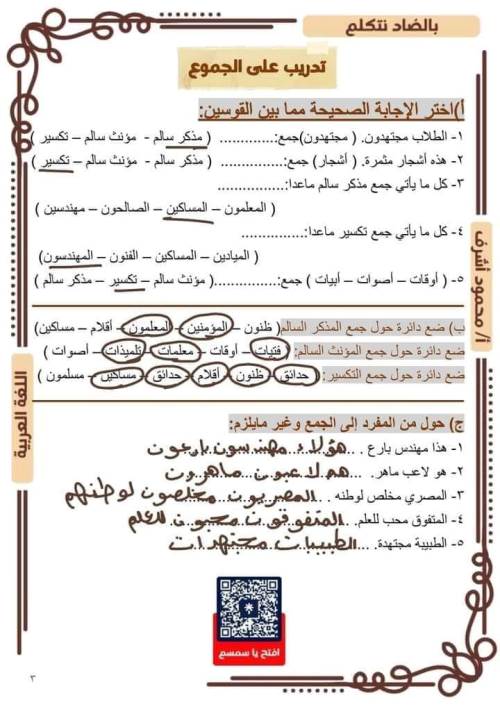 بالضاد نتكلم
تدريب على الجموع
أ)اختر الإجابة الصحيحة مما بين القوسين:
١- الطلاب مجتهدون. ( مجتهدون)جمع:.............. ( مذكر سالم - مؤنث سالم – تكسير )
٢- هذه أشجار مثمرة. ( أشجار) جمع:................ ( مذكر سالم - مؤنث سالم – تكسير )
٣- كل ما يأتي جمع مذكر سالم ماعدا:................
( المعلمون – المساكين – الصالحون – مهندسين )
٤- كل ما يأتي جمع تكسير ماعدا:................
( الميادين – المساكين – الفنون – المهندسون)
٥- ( أوقات – أصوات – أبيات ) جمع:................( مؤنث سالم – تكسير – مذكر سالم )
ب) ضع دائرة حول جمع المذكر السالم( ظنون – المؤمنين – المعلمون – أقلام – مساكين)
ضع دائرة حول جمع المؤنث السالم: ( فتيات – أوقات – معلمات – تلميذات – أصوات )
ضع دائرة حول جمع التكسير: ( حدائق – ظنون – أقلام – حدائق – مساكين – مسلمون )
ج) حول من المفرد إلى الجمع وغير مايلزم:
١- هذا مهندس بارع . هؤلاء مهندسون بارعون
٢- هو لاعب ماهر. هم لاعبون ماهرون
٣- المصري مخلص لوطنه . المصريون مخلصون لوطنهم
٤- المتفوق محب للعلم. المتفوقون محبون للعلم
٥- الطبيبة مجتهدة. الطبيبات مجتهدات
افتح يا سمسم
٣
أ/ محمود أشرف
اللغة العربية